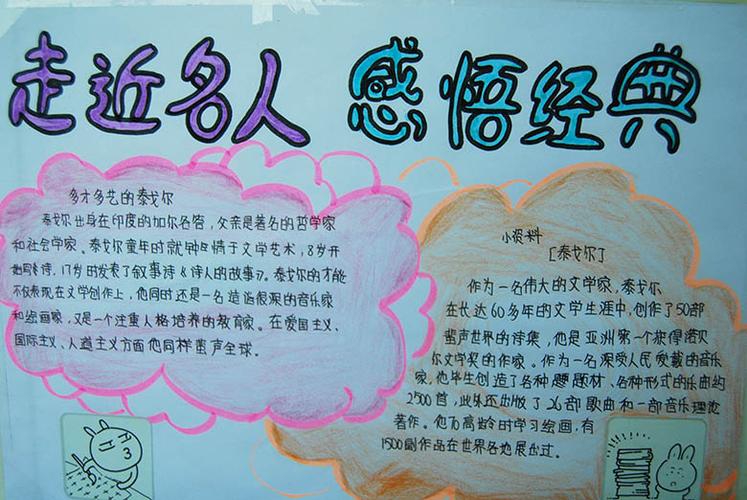 走近名人 感悟经典
多才多艺的泰戈尔
泰戈尔出身在印度的加尔各答，父亲是著名的哲学家
和社会学家。泰戈尔童年时就钟情于文学艺术，8岁开
始写诗，17岁时发表了叙事诗《诗人的故事》。泰戈尔的才能
不仅表现在文学创作上，他同时还是一名造诣很深的音乐家
和绘画家，又是一个注重人格培养的教育家。在爱国主义、
国际主义、人道主义方面他同样蜚声全球。
小资料
［泰戈尔］
作为一名伟大的文学家，泰戈尔
在长达60多年的文学生涯中，创作了50部
蜚声世界的诗集，他是亚洲第一个获得诺贝
尔文学奖的作家。作为一名深受人民爱戴的音乐
家，他毕生创造了各种题题材、各种形式的乐曲约
2500首，此外还出版了26部歌曲和一部音乐理论
著作。他70高龄时学习绘画，有
1500副作品在世界各地展出过。